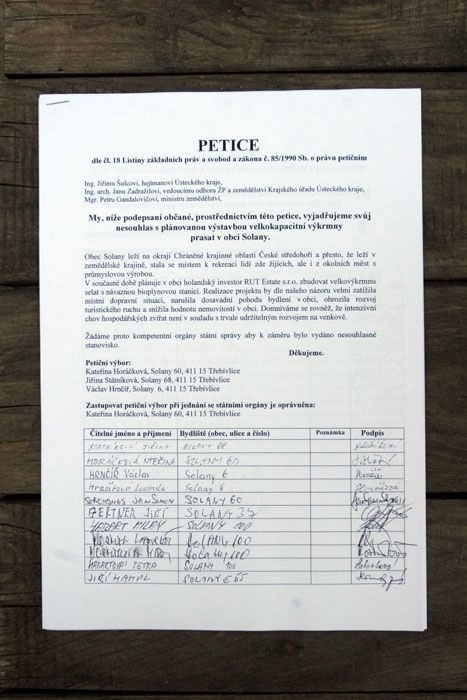 PETICE
dle čl. 18 Listiny základních práv a svobod a zákona č. 85/1990 Sb. o právu petičním
Ing. Jiřímu Šulcovi, hejtmanovi Ústeckého kraje,
Ing. arch. Janu Zadražilovi, vedoucímu odboru ŽP a zemědělství Krajského úřadu Ústeckého kraje,
Mgr. Petru Gandalovičovi, ministru zemědělství,
My, níže podepsaní občané, prostřednictvím této petice, vyjadřujeme svůj
nesouhlas s plánovanou výstavbou velkokapacitní výkrmny
prasat v obci Solany.
Obec Solany leží na okraji Chráněné krajinné oblasti České středohoří a přesto, že leží v
zemědělské krajině, stala se místem k rekreaci lidí zde žijících, ale i z okolních měst s
průmyslovou výrobou.
V současné době plánuje v obci holandský investor RUT Estate s.r.o. zbudovat velkovýkrmnu
selat s návaznou bioplynovou stanicí. Realizace projektu by dle našeho názoru velmi zatížila
místní dopravní situaci, narušila dosavadní pohodu bydlení v obci, ohrozila rozvoj
turistického ruchu a snížila hodnotu nemovitostí v obci. Domníváme se rovněž, že intenzivní
chov hospodářských zvířat není v souladu s trvale udržitelným rozvojem na venkově.
Žádáme proto kompetentní orgány státní správy aby k záměru bylo vydáno nesouhlasné
stanovisko.
Děkujeme.
Petiční výbor:
Kateřina Horáčková, Solany 60, 411 15 Třebívlice
Jiřina Státníková, Solany 68, 411 15 Třebívlice
Václav Hrnčíř, Solany 6, 411 15 Třebívlice
Zastupovat petiční výbor při jednání se státními orgány je oprávněna:
Kateřina Horáčková, Solany 60, 411 15 Třebívlice
Čitelné jméno a příjmení Bydliště (obec, ulice a číslo) Poznámka Podpis
STATNÍKOVÁ JIŘINA SOLANY
HORÁČKOVÁ KATEŘINA SOLANY 60
HRNČÍŘ Václav Solany 6
Ludmila Solany 6
SOLANY 60
GERTNER JIŘÍ SOLANY
SOLANY 100
100
Solany 100
PETRA SOLANY 100
JIŘÍ HAMPL SOLANY 65